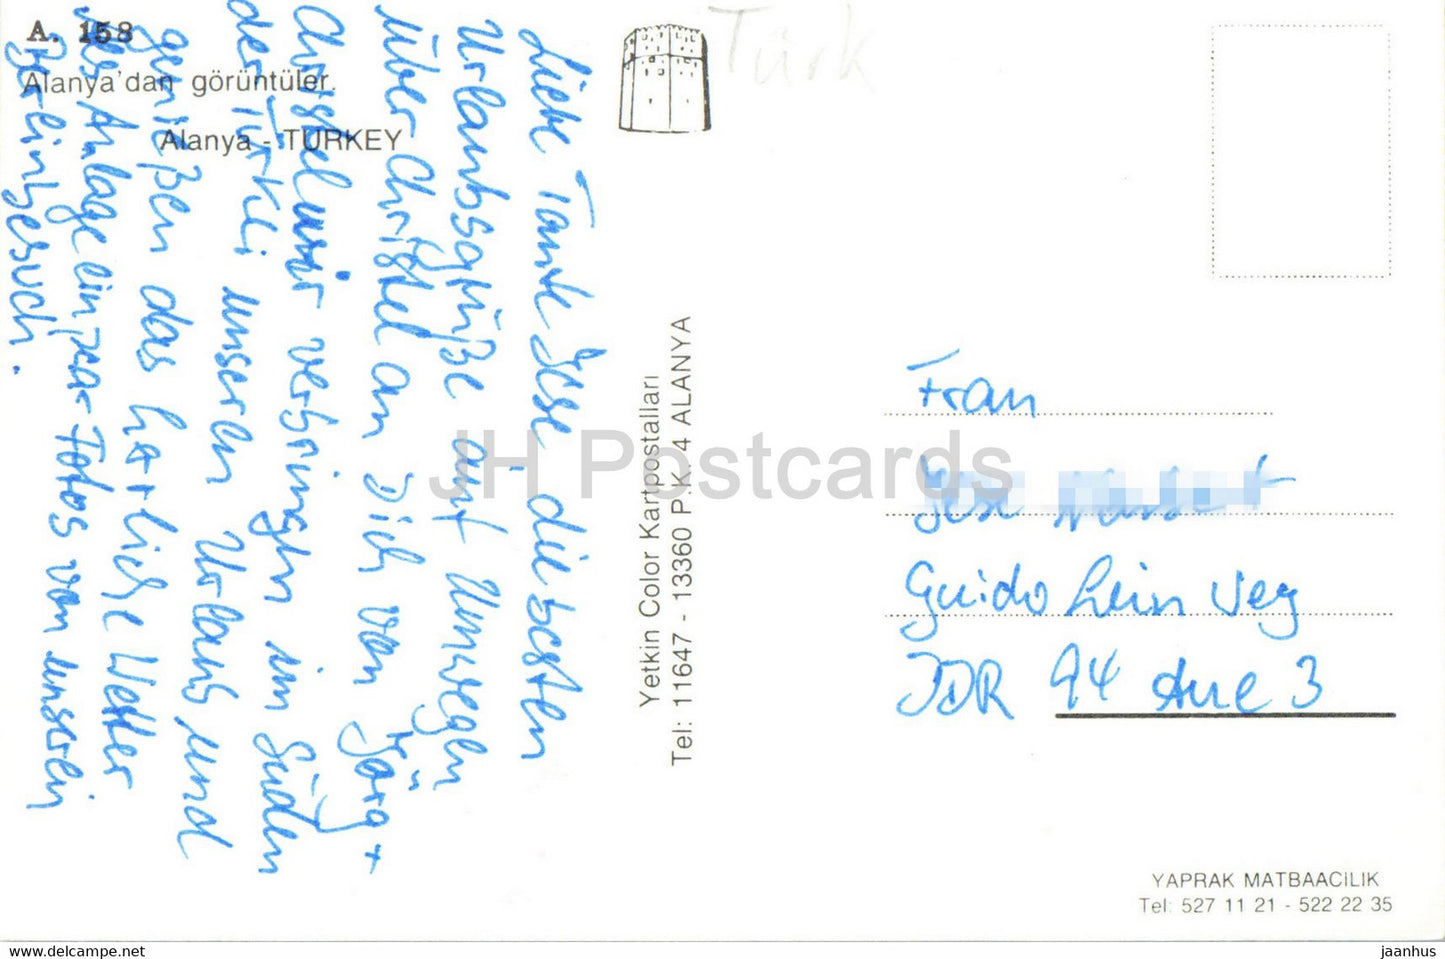 A. 158
Alanya'dan görüntüler.
Alanya - TURKEY
Türk
Liebe Tante Ilse, die besten
Urlaubsgrüße auf Umwegen
über Christel an Dich von Jörg +
Christel wir verbringen im Süden
der Türkei unseren Urlaub und
genießen das herrliche Wetter
der Anlage ein paar Fotos von unserem
Berlinbesuch.
Yetkin Color Kartpostalları
Tel: 11647 - 13360 P.K. 4 ALANYA
Frau
Ilse
Guido Lein Weg
DDR 94 Aue 3
YAPRAK MATBAACILIK
Tel: 527 11 21 - 522 22 35
JH Postcards
https://www.ebay.com/usr/jaanhus
jaanhus